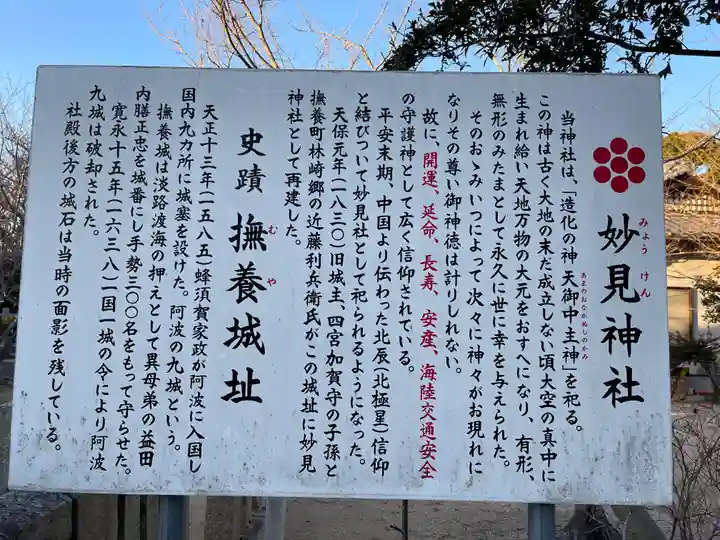 妙見神社
みょうけん
当神社は、「造化の神 天御中主神」を祀る。
あまのおなかぬしのかみ
この神は古く大地の末だ成立しない頃大空の真中に
生まれ給い天地万物の大元をおすへになり、有形、
無形のみたまとして永久に世に幸を与えられた。
そのおゝみいつによって次々に神々がお現れに
なりその尊い御神徳は計りしれない。
故に、開運、延命、長寿、安産、海陸交通安全
の守護神として広く信仰されている。
平安末期、中国より伝わった北辰(北極星)信仰
と結びついて妙見社として祀られるようになった。
天保元年(一八三〇)旧城主、四宮加賀守の子孫と
撫養町林崎郷の近藤利兵衛氏がこの城址に妙見
神社として再建した。
史蹟 撫養城址
むや
天正十三年(一五八五)蜂須賀家政が阿波に入国し
国内九カ所に城塞を設けた。阿波の九城という。
撫養城は淡路渡海の押えとして異母弟の益田
内膳正忠を城番にし手勢三〇〇名をもって守らせた。
寛永十五年(一六三八)一国一城の今により阿波
九城は破却された。
社殿後方の城石は当時の面影を残している。